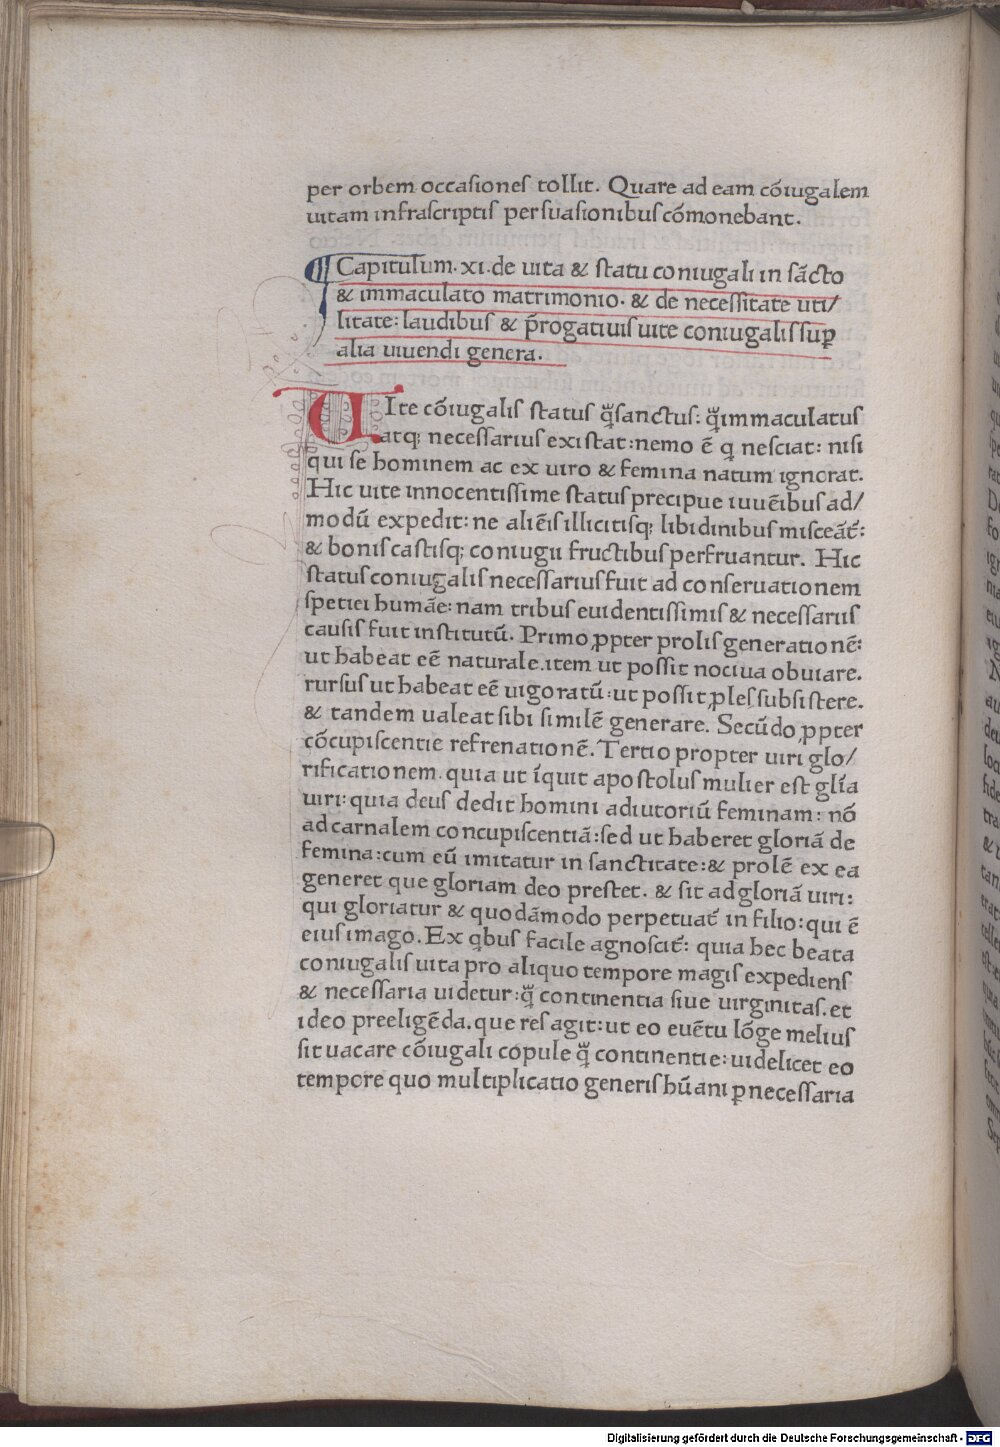 per orbem occasiones tollit. Quare ad eam cõiugalem
uitam infrascriptis persuasionibus cõmonebant.
¶ Capitulum. xi. de uita & statu coniugali in sãcto
& immaculato matrimonio. & de necessitate uti/
litate: laudibus & p̃rogatiuis uite coniugalis suꝑ
alia uiuendi genera.
UIte cõiugalis status q̃̃ sanctus: q̃̃ immaculatus
atq; necessarius existat: nemo ẽ q nesciat: nisi
qui se hominem ac ex uiro & femina natum ignorat.
Hic uite innocentissime status precipue iuuẽibus ad/
modũ expedit: ne aliẽis illicitisq; libidinibus misceãt̃:
& bonis castisq; coniugii fructibus perfruantur. Hic
status coniugalis necessarius fuit ad conseruationem
spetiei humãe: nam tribus euidentissimis & necessariis
causis fuit institutũ. Primo ꝓpter prolis generationẽ:
ut habeat eẽ naturale. item ut possit nociua obuiare.
rursus ut habeat eẽ uigoratũ: ut possit ꝓles subsistere.
& tandem ualeat sibi similẽ generare. Secũdo ꝓpter
cõcupiscentie refrenationẽ. Tertio propter uiri glo/
rificationem. quia ut ĩquit apostolus mulier est glĩa
uiri: quia deus dedit homini adiutoriũ feminam: nõ
ad carnalem concupiscentiã: sed ut haberet gloriã de
femina: cum eũ imitatur in sanctitate: & prolẽ ex ea
generet que gloriam deo prestet. & sit ad gloriã uiri:
qui gloriatur & quodãmodo perpetuat̃ in filio: qui ẽ
eius imago. Ex qbus facile agnoscit̃: quia hec beata
coniugalis uita pro aliquo tempore magis expediens
& necessaria uidetur: q̃̃ continentia siue uirginitas. et
ideo preeligẽda. que res agit: ut eo euẽtu lõge melius
sit uacare cõiugali copule q̃̃ continentie: uidelicet eo
tempore quo multiplicatio generis hũani ꝑnecessaria
Digitalisierung gefördert durch die Deutsche Forschungsgemeinschaft - DFG